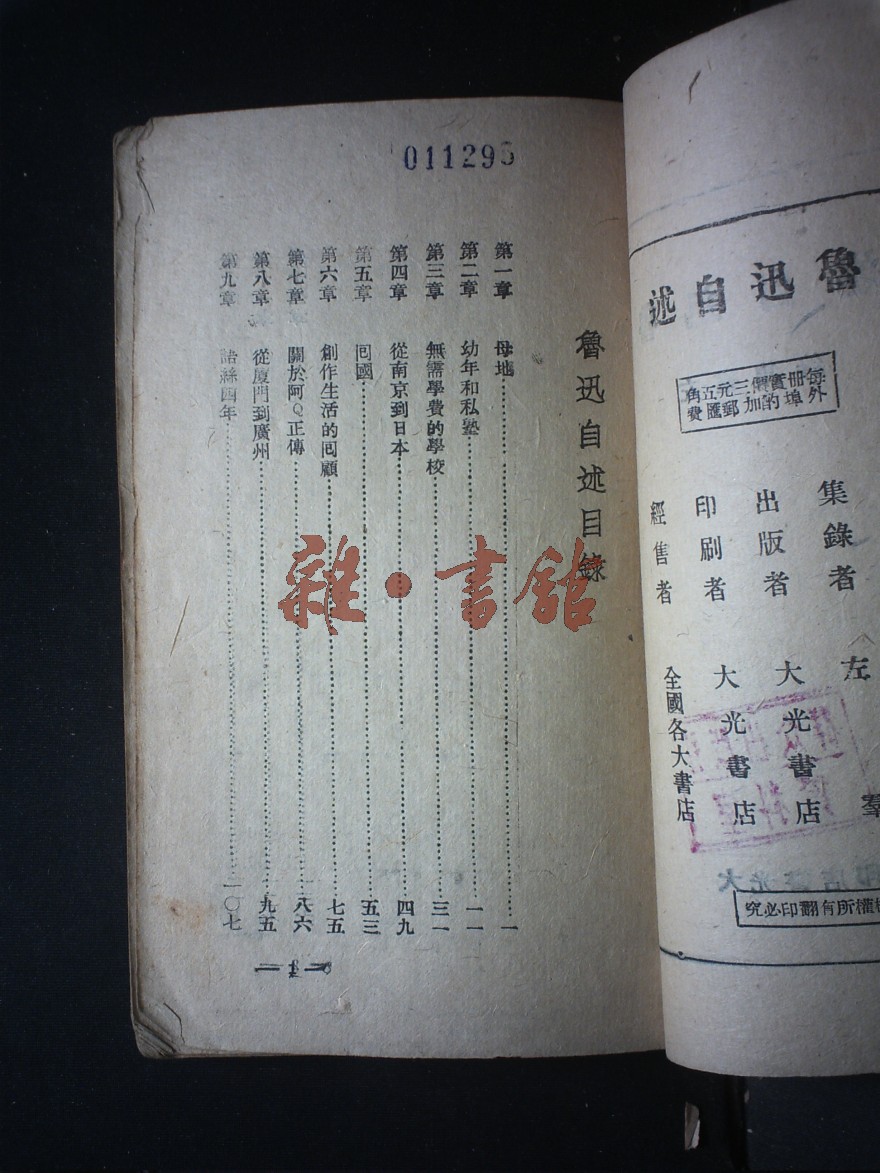 魯迅自述
每冊實價三元五角
外埠酌加郵匯費
集錄者 左
出版者 大光書店
印刷者 大光書店
經售者 全國各大書店
權所有翻印必究
011295
魯迅自述目錄
第一章 母地 一
第二章 幼年和私塾 一一
第三章 無需學費的學校 三一
第四章 從南京到日本 四九
第五章 回國 五三
第六章 創作生活的回顧 七五
第七章 關於阿Q正傳 八六
第八章 從厦門到廣州 九五
第九章 語絲四年 一〇七
— 1 —
雜·書館